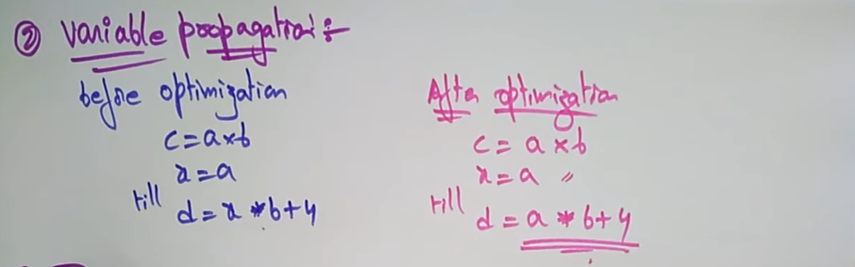 ② Variable propagation:-
before optimization
c = a x b
x = a
till
d = x * b + 4
After optimization
c = a x b
x = a "
till
d = a * b + 4